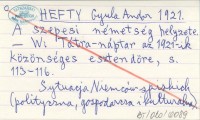 HEFTY Gyula Andor 1921.
A szepesi németség helyzete.
— W: Tátra-naptár az 1921-ik
közönséges esztendőre, s.
113-116.
Sytuacja Niemców spiskich
(polityczna, gospodarcza i kulturalna)